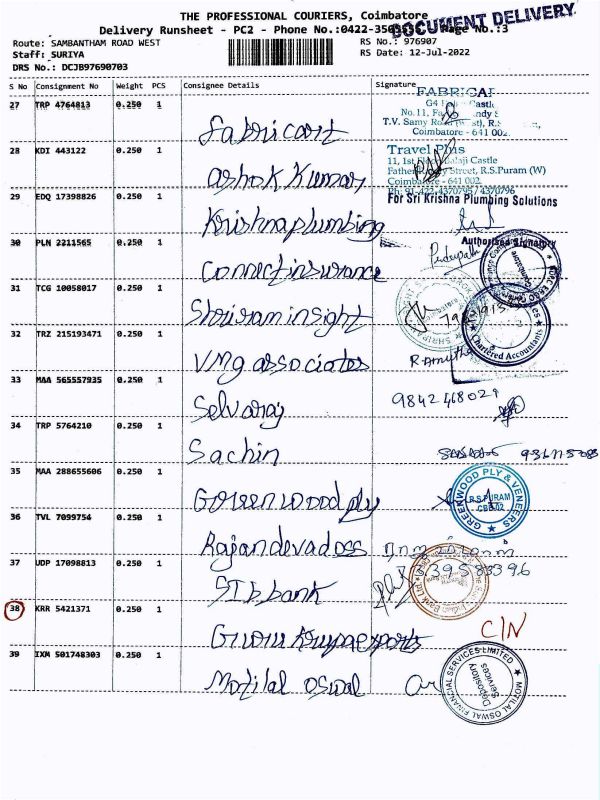 THE PROFESSIONAL COURIERS, Coimbatore
DOCUMENT DELIVERY
Delivery Runsheet - PC2 - Phone No.:0422-350 Page No.:3
Route: SAMBANTHAM ROAD WEST
RS No.: 976907
Staff: SURIYA
RS Date: 12-Jul-2022
DRS No.: DCJB97690703
S No Consignment No Weight PCS Consignee Details Signature
27 TRP 4764813 0.250 1
Fabricart
FABRICA
G4 Castle
No.11,
T.V. Samy Road (West), R.S.
Coimbatore - 641 002.
28 KDI 443122 0.250 1
Ashok Kumar
Travel Plus
11, 1st Floor Balaji Castle
Street, R.S.Puram (W)
Coimbatore - 641 002.
Ph: 91-422-4370795/ 4370796
29 EDQ 17398826 0.250 1
Krishna plumbing
For Sri Krishna Plumbing Solutions
Authorised Signatory
30 PLN 2211565 0.250 1
Connect insurance
31 TCG 10058017 0.250 1
Shriram insight
Chartered Accountants
32 TRZ 215193471 0.250 1
VMG associates
R. Amutha
33 MAA 565557935 0.250 1
Selvaraj
34 TRP 5764210 0.250 1
Sachin
35 MAA 288655606 0.250 1
Greenwood ply
GREENWOOD PLY & VENEERS
R.S PURAM
CBE-02
36 TVL 7099754 0.250 1
Rajan devadoss
37 UDP 17098813 0.250 1
SIB bank
38 KRR 5421371 0.250 1
Guru Krupa exports
C/N
39 IXM 501748303 0.250 1
Motilal oswal
MOTILAL OSWAL FINANCIAL SERVICES LIMITED
Depository
Services